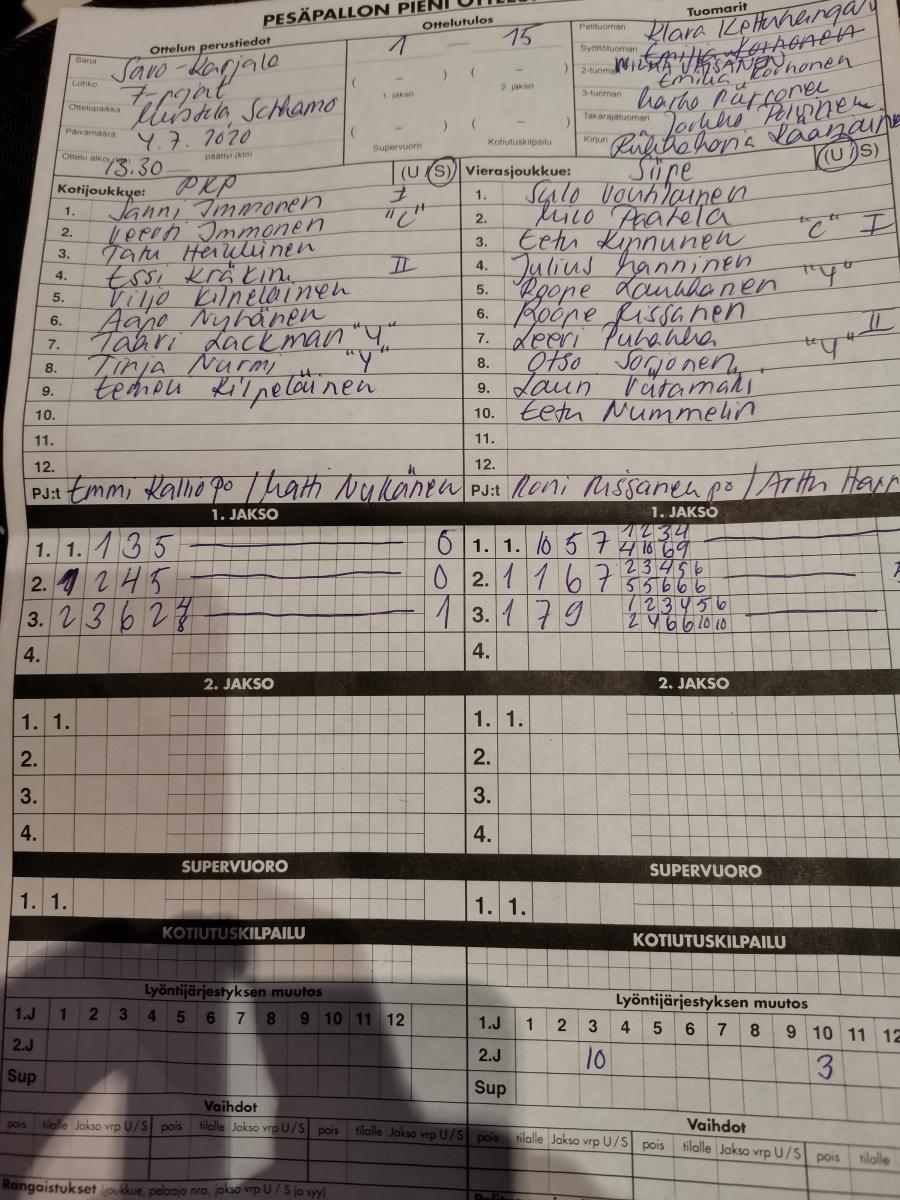 PESÄPALLON PIENI
Ottelun perustiedot
Ottelutulos
Tuomarit
Sarja
Savo-Karjala
1 — 15
Pelituomari
Klara
Lohko
7-pojat
( – ) ( – )
Syöttötuomari
Emilia Korhonen
1 jakso
2 jakso
2-tuomari
Emilia Korhonen
Ottelupaikka
3-tuomari
Päivämäärä
4.7.2020
( – ) ( – )
Takarajatuomari
Supervuoro
Kotiutuskilpailu
Kirjuri
Ottelu alkoi (klo)
13.30
päättyi (klo)
Kotijoukkue: PKP (U S)
1. Sanni Immonen I
2. Veeti Immonen "C"
3. Tatu
4. Essi Kräkin II
5. Viljo Kilpeläinen
6. Aapo Nykänen
7. Taavi Lackman "Y"
8. Tinja Nurmi "Y"
9. Eemeli Kilpeläinen
10.
11.
12.
PJ:t Emmi Kalliopo / Matti Nykänen
Vierasjoukkue: Siipe (U S)
1. Salo Voutilainen
2. Nico Paatela
3. Eetu Kinnunen "C" I
4. Julius Hänninen
5. Roope Laukkanen "Y"
6. Roope Rissanen
7. Leevi Puhakka II
8. Otso Sorjonen "Y"
9. Lauri Vätämäki
10. Eetu Nummelin
11.
12.
PJ:t Roni Rissanen po / Arttu
1. JAKSO
1. 1. 1 3 5 0
2. 1 2 4 5 0
3. 2 3 6 2 4 8 1
4.
2. JAKSO
1. 1.
2.
3.
4.
SUPERVUORO
1. 1.
KOTIUTUSKILPAILU
Lyöntijärjestyksen muutos
1.J 1 2 3 4 5 6 7 8 9 10 11 12
2.J
Sup
Vaihdot
pois tilalle Jakso vrp U/S pois tilalle Jakso vrp U/S pois tilalle Jakso vrp U/S
Rangaistukset (joukkue, pelaaja nro, jakso vrp U / S ja syy)
1. JAKSO
1. 1. 10 5 7 1 2 3 4
4 10 6 9
2. 1 1 6 7 2 3 4 5 6
5 5 6 6 6
3. 1 7 9 1 2 3 4 5 6
2 4 6 6 10 10
4.
2. JAKSO
1. 1.
2.
3.
4.
SUPERVUORO
1. 1.
KOTIUTUSKILPAILU
Lyöntijärjestyksen muutos
1.J 1 2 3 4 5 6 7 8 9 10 11 12
2.J 10 3
Sup
Vaihdot
pois tilalle Jakso vrp U/S pois tilalle Jakso vrp U/S pois tilalle